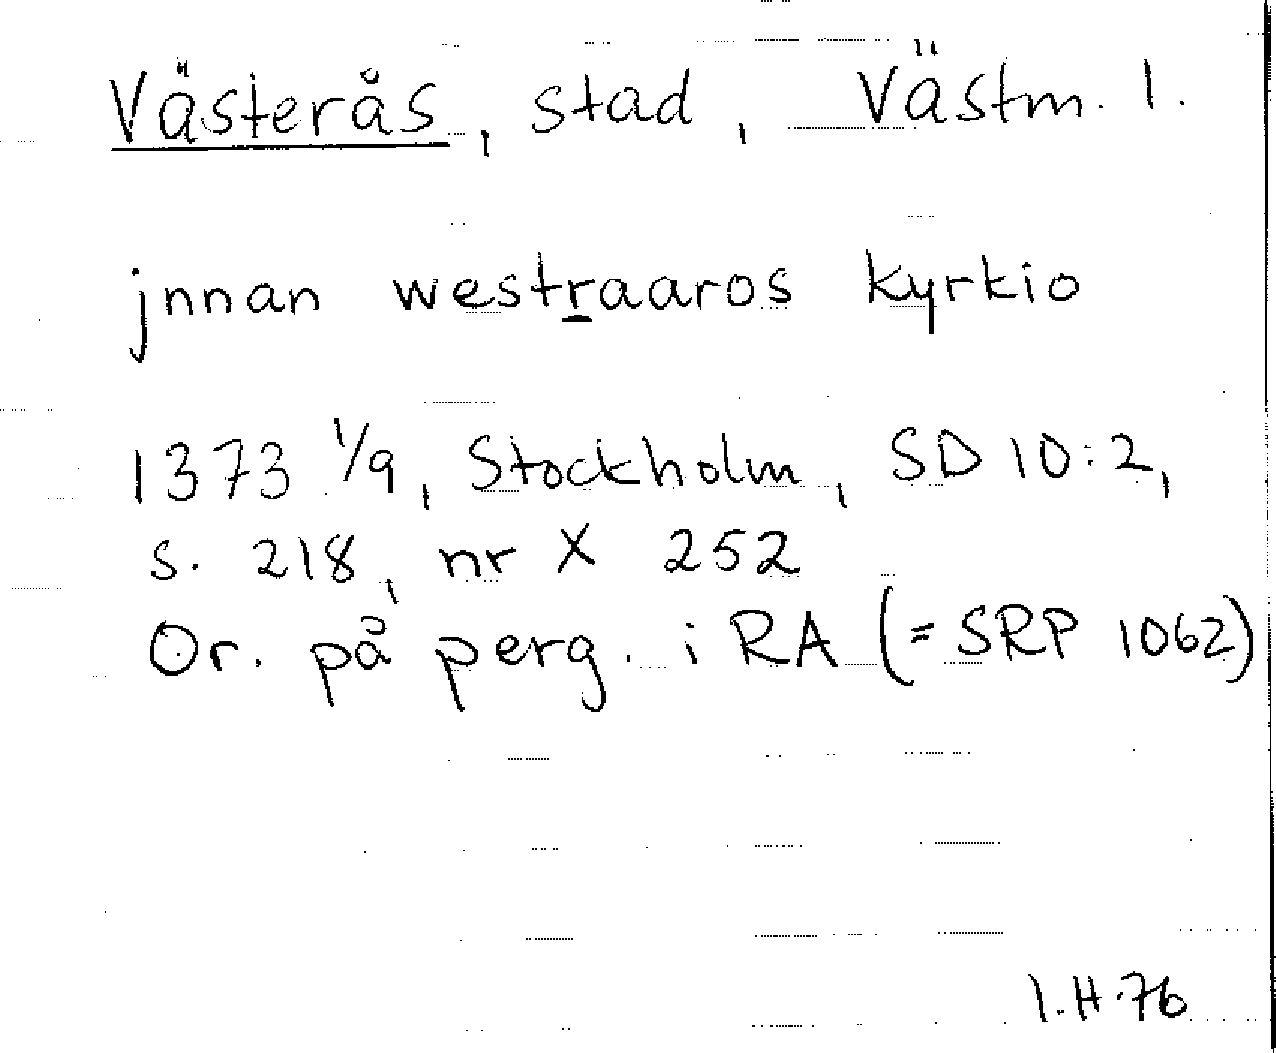 Västerås, stad, Västm. l.
jnnan westraaros kyrkio
1373 1/9, Stockholm, SD 10:2,
s. 218, nr X 252
Or. på perg. i RA (= SRP 1062)
I.H.76